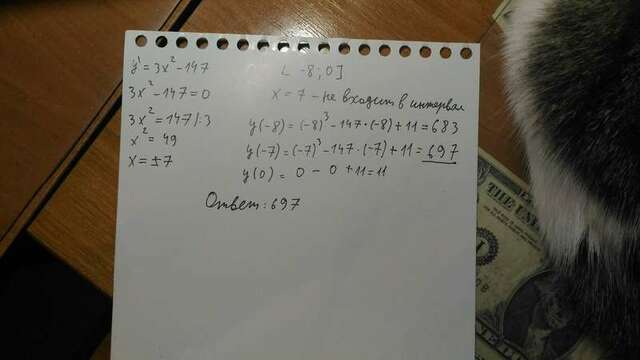 y' = 3x² - 147
3x² - 147 = 0
3x² = 147 |:3
x² = 49
x = ±7
[ -8; 0 ]
x = 7 - не входит в интервал
y(-8) = (-8)³ - 147·(-8) + 11 = 683
y(-7) = (-7)³ - 147·(-7) + 11 = 697
y(0) = 0 - 0 + 11 = 11
Ответ: 697